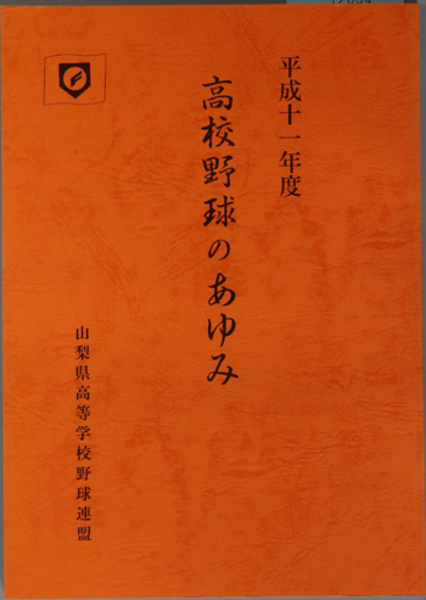 平成十一年度
高校野球のあゆみ
山梨県高等学校野球連盟
F